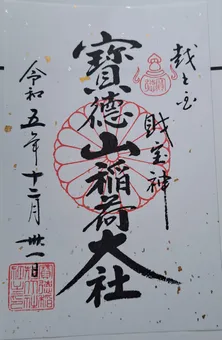 越之国
財宝神
寶德山稲荷大社
令和五年十二月卅一日